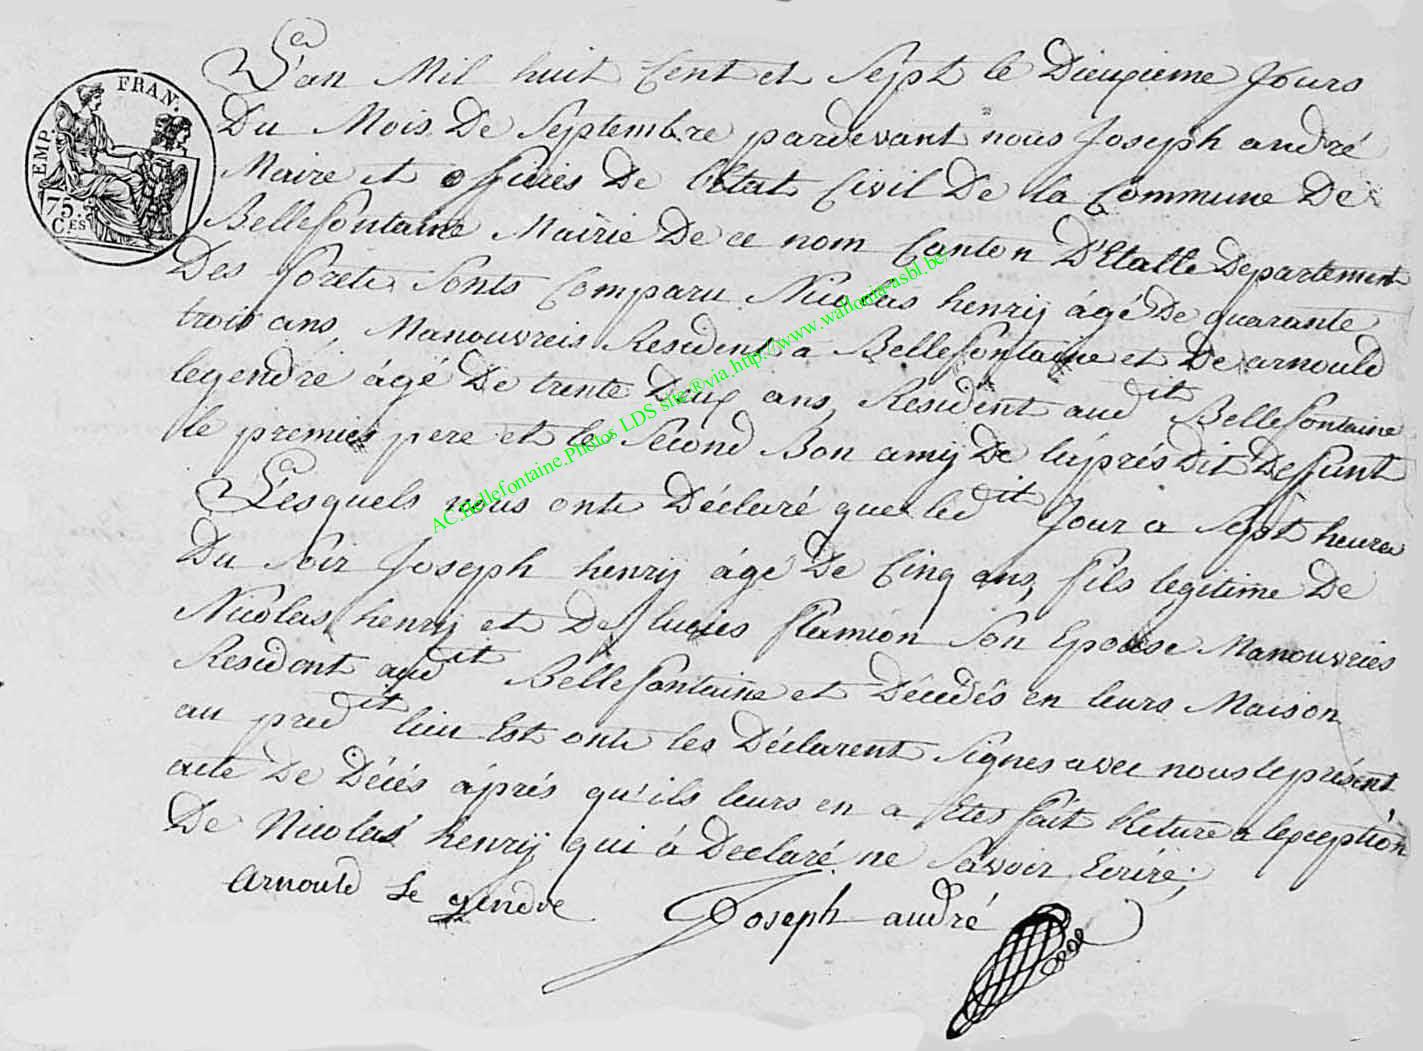 EMP. FRAN.
75. CES
L'an Mil huit Cent et Sept le Dieuxieme Jours
Du Mois De Septembre pardevant nous Joseph andré
Maire et officies De l'Etat Civil De la Commune De
Bellefontaine Mairie De ce nom Canton D'Etalle Departement
Des forets Sonts Comparu Nicolas henrÿ ágé De quarante
trois ans, Manouvreis Resident a Bellefontaine et De arnould
legendre ágé De trente Deux ans, Resident audit Bellefontaine
le premies pere et le Second Bon amÿ De l'áprés Dit Defunt
Lesquels nous onts Déclaré que ledit Jour a Sept heures
Du Soir Joseph henrÿ ágé De Cinq ans, fils legitime De
Nicolas henrÿ et De lucies flamion Son Epouse Manouvries
Resident audit Bellefontaine et Décedés en leurs Maison
au predit lieu Est onts les Déclarent Signes avec nous le présent
acte De Décés áprés qu'ils leurs en a Etes fait lleture a lexception
De Nicolas henrÿ qui á Declaré ne Savoir Ecriré;
Arnould Le gendre Joseph andré
AC.Bellefontaine.Photos LDS site®via.http://www.wallonia-asbl.be/